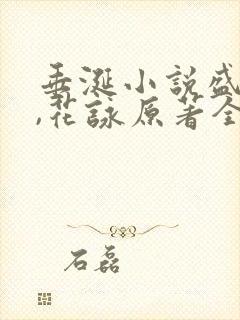 垂涎小説盛
,花詠原著全
石磊